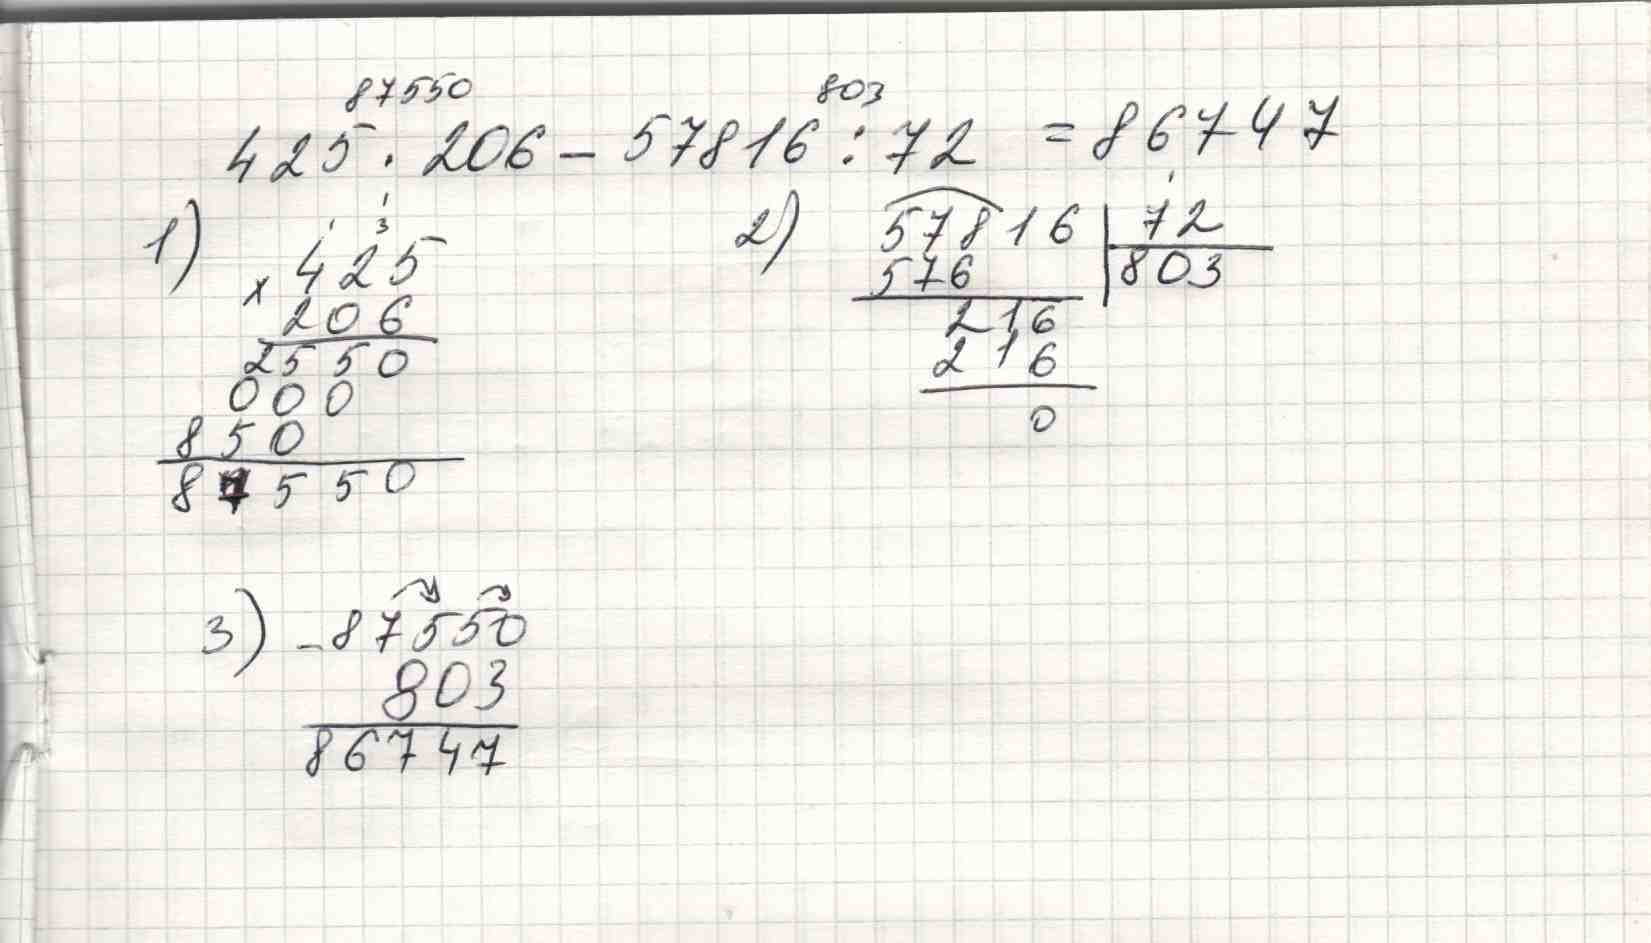 87550 803
425 · 206 – 57816 : 72 = 86747
1)
425
× 206
2550
000
850
87550
2) 57816 | 72
576 803
216
216
0
3) – 87550
803
86747